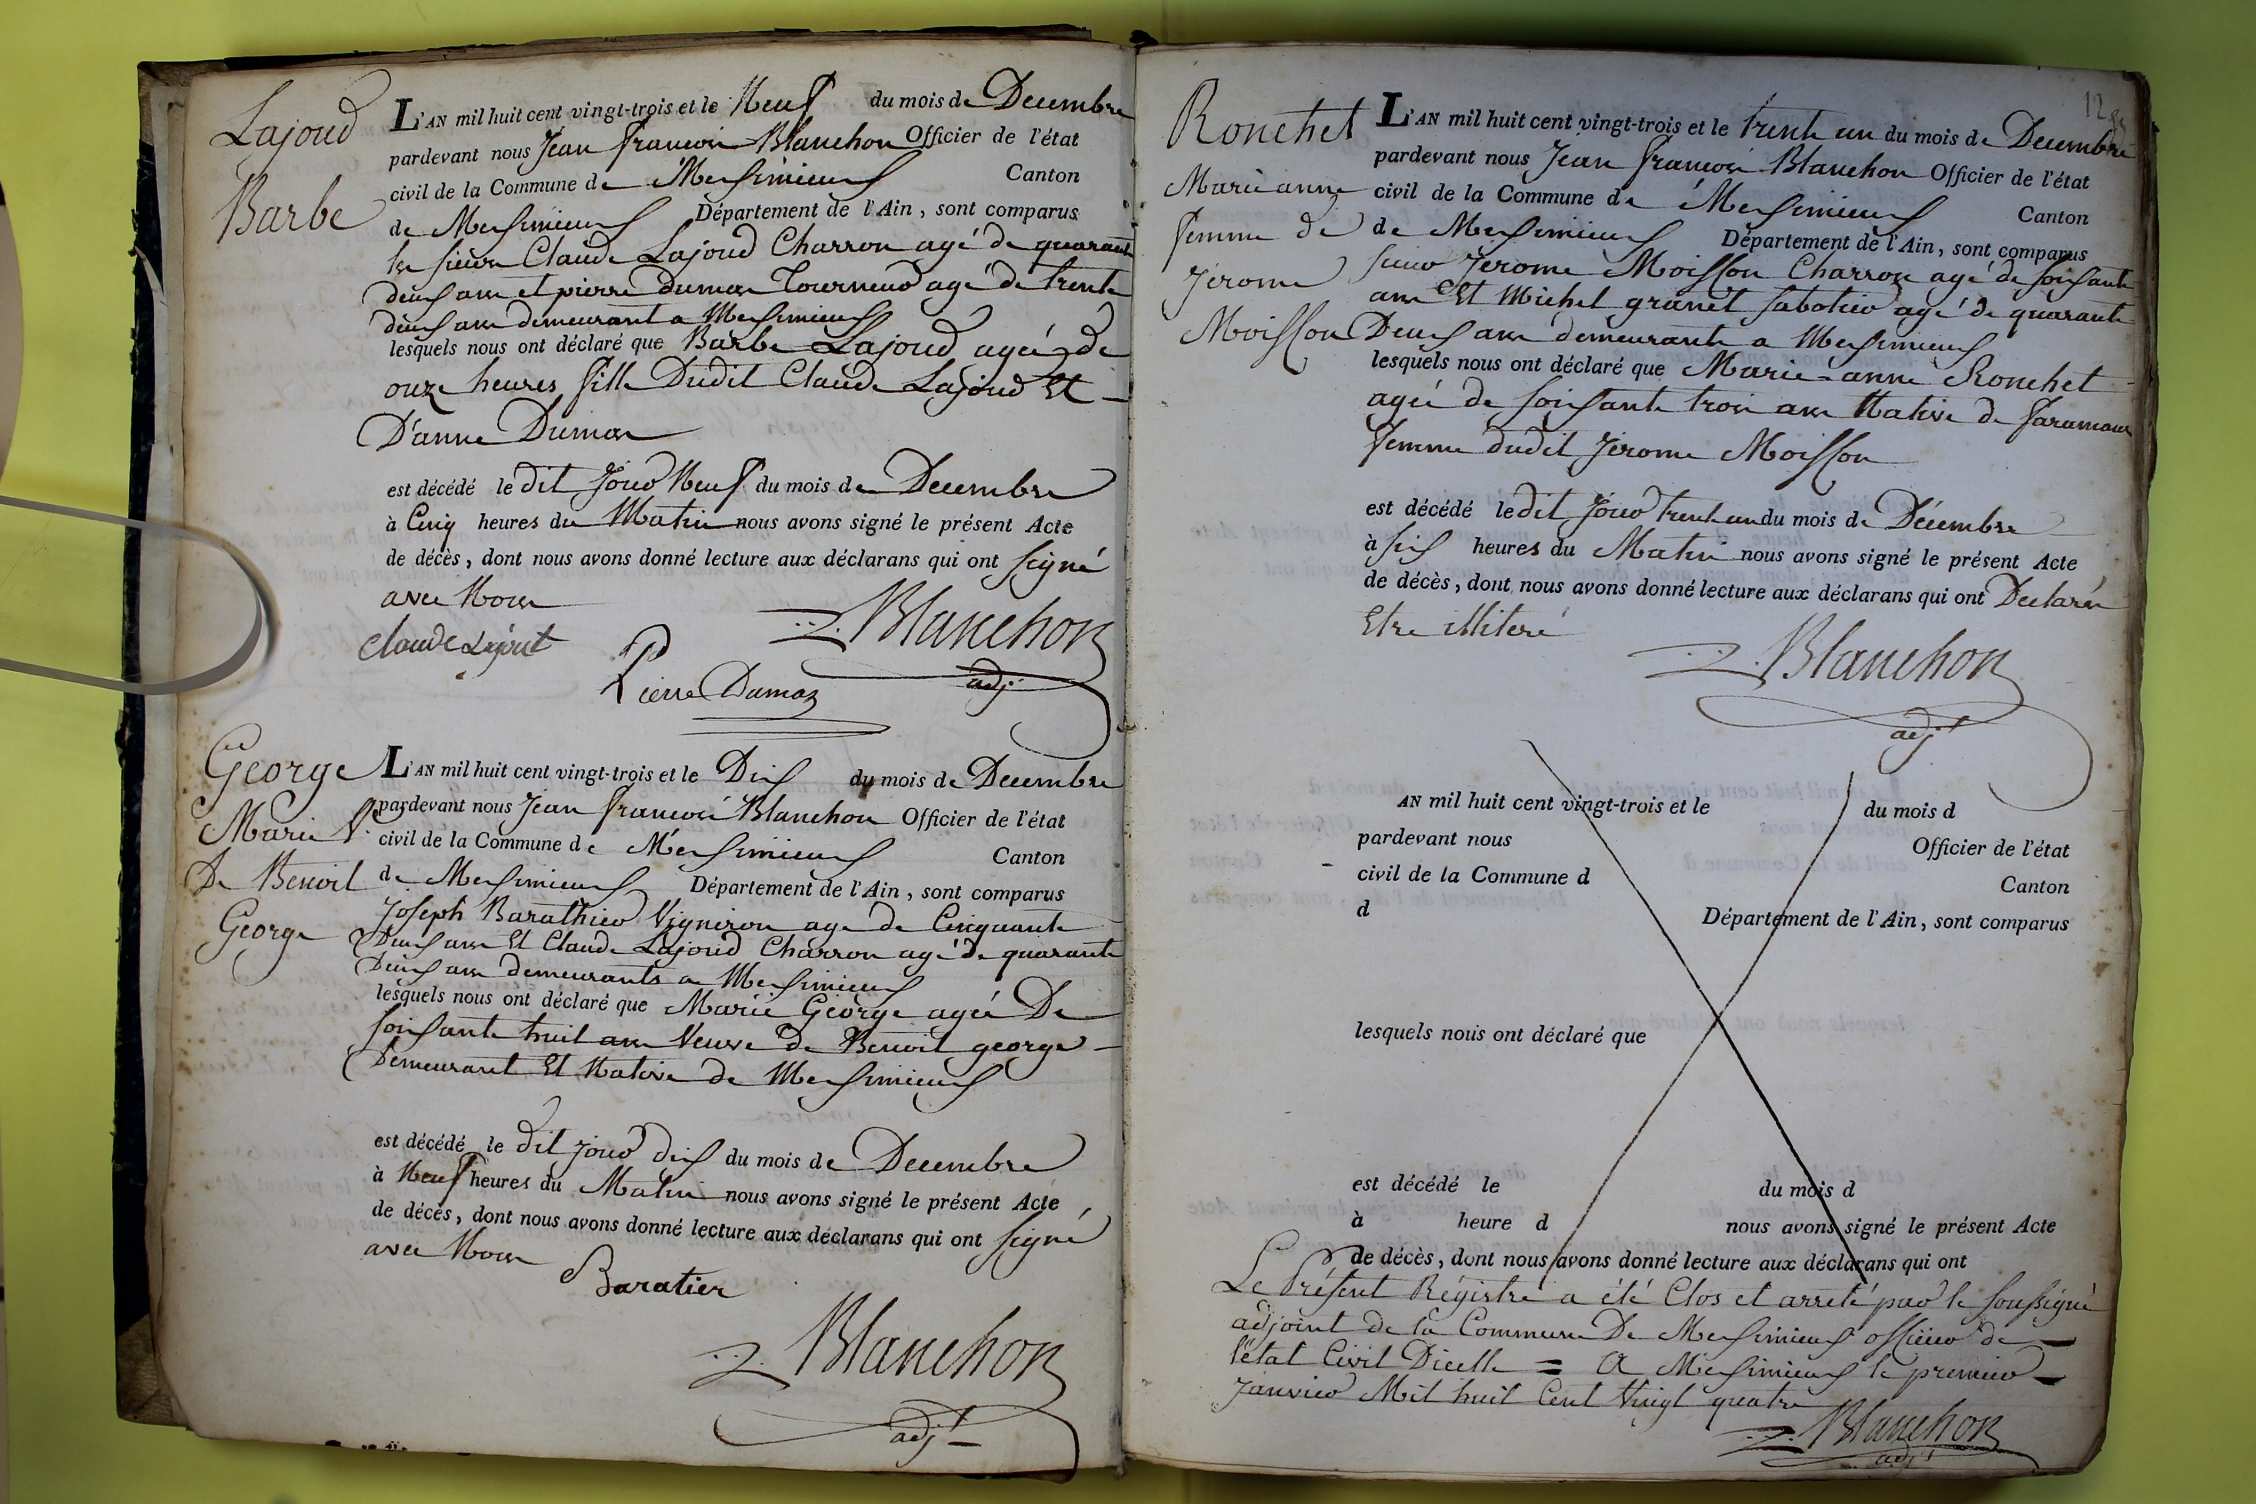 Lajoud
Barbe
L'AN mil huit cent vingt-trois et le Neuf du mois de Decembre
pardevant nous Jean francois Blanchon Officier de l'état
civil de la Commune de Messimieux Canton
de Messimieux Département de l'Ain, sont comparus
les sieurs Claude Lajoud Charron agé de quarante
deux ans et pierre dumas Tourneur agé de trente
deux ans demeurant a Messimieux
lesquels nous ont déclaré que Barbe Lajoud agée de
onze heures fille Dudit Claude Lajoud Et
D'anne Dumas
est décédé le dit Jour Neuf du mois de Decembre
à Cinq heures du Matin nous avons signé le présent Acte
de décès, dont nous avons donné lecture aux déclarans qui ont signé
avec Nous
Blanchon
adj.
claude Lajout
Pierre Dumas
George
Marie V.
De Benoit
George
L'AN mil huit cent vingt-trois et le Dix du mois de Decembre
pardevant nous Jean francois Blanchon Officier de l'état
civil de la Commune de Messimieux Canton
de Messimieux Département de l'Ain, sont comparus
Joseph Barathier Vigneron age de Cinquante
Deux ans Et Claude Lajoud Charron agé de quarante
Deux ans demeurants a Messimieux
lesquels nous ont déclaré que Marie George agée De
soixante huit ans Veuve de Benoit george
Demeurant Et Native de Messimieux
est décédé le dit jour dix du mois de Decembre
à Neuf heures du Matin nous avons signé le présent Acte
de décès, dont nous avons donné lecture aux déclarans qui ont signé
avec Nous
Baratier
Blanchon
adjt
Ronchet
Marie anne
femme de
Jérome
Moisson
L'AN mil huit cent vingt-trois et le trente un du mois de Decembre
pardevant nous Jean francois Blanchon Officier de l'état
civil de la Commune de Messimieux Canton
de Messimieux Département de l'Ain, sont comparus
sieur Jérome Moisson Charron agé de soixante
ans Et Michel granet sabotier agé de quarante
Deux ans demeurants a Messimieux
lesquels nous ont déclaré que Marie-anne Ronchet
agée de soixante trois ans Native de faramans
femme dudit Jérome Moisson
est décédé le dit Jour trente un du mois de Décembre
à six heures du Matin nous avons signé le présent Acte
de décès, dont nous avons donné lecture aux déclarans qui ont Declarés
Etre illiteré
Blanchon
adjt
AN mil huit cent vingt-trois et le du mois d
pardevant nous Officier de l'état
civil de la Commune d Canton
d Département de l'Ain, sont comparus
lesquels nous ont déclaré que
est décédé le du mois d
à heure d nous avons signé le présent Acte
de décès, dont nous avons donné lecture aux déclarans qui ont
Le Présent Régistre a été Clos et arreté par le soussigné
adjoint de la Commune De Messimieux officier de
l'état Civil Dicelle = A Messimieux le premier
Janvier Mil huit Cent Vingt quatre
Blanchon
adjt